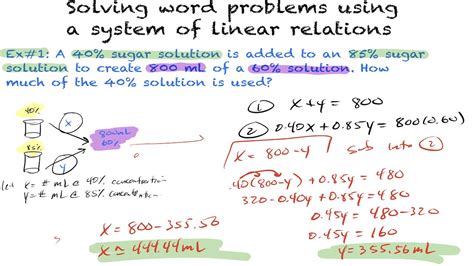 Solving word problems using
a system of linear relations
Ex#1: A 40% sugar solution is added to an 85% sugar
solution to create 800 mL of a 60% solution. How
much of the 40% solution is used?
40%
x
800mL
60%
85%
y
Let x = # mL @ 40% concentration
y = # mL @ 85% concentration
① x+y = 800
② 0.40x + 0.85y = 800(0.60)
x = 800-y sub into ②
.40(800-y) + 0.85y = 480
320 - 0.40y + 0.85y = 480
0.45y = 480-320
0.45y = 160
y = 355.56mL
x = 800-355.56
x ≈ 444.44mL